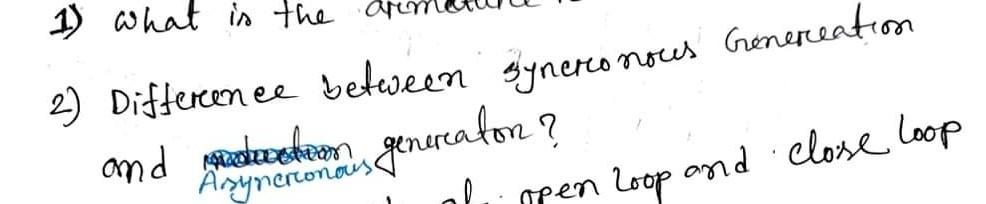 1) What is the
2) Difference between syncronous Generation
and Asyncronous generator?
open loop and close loop